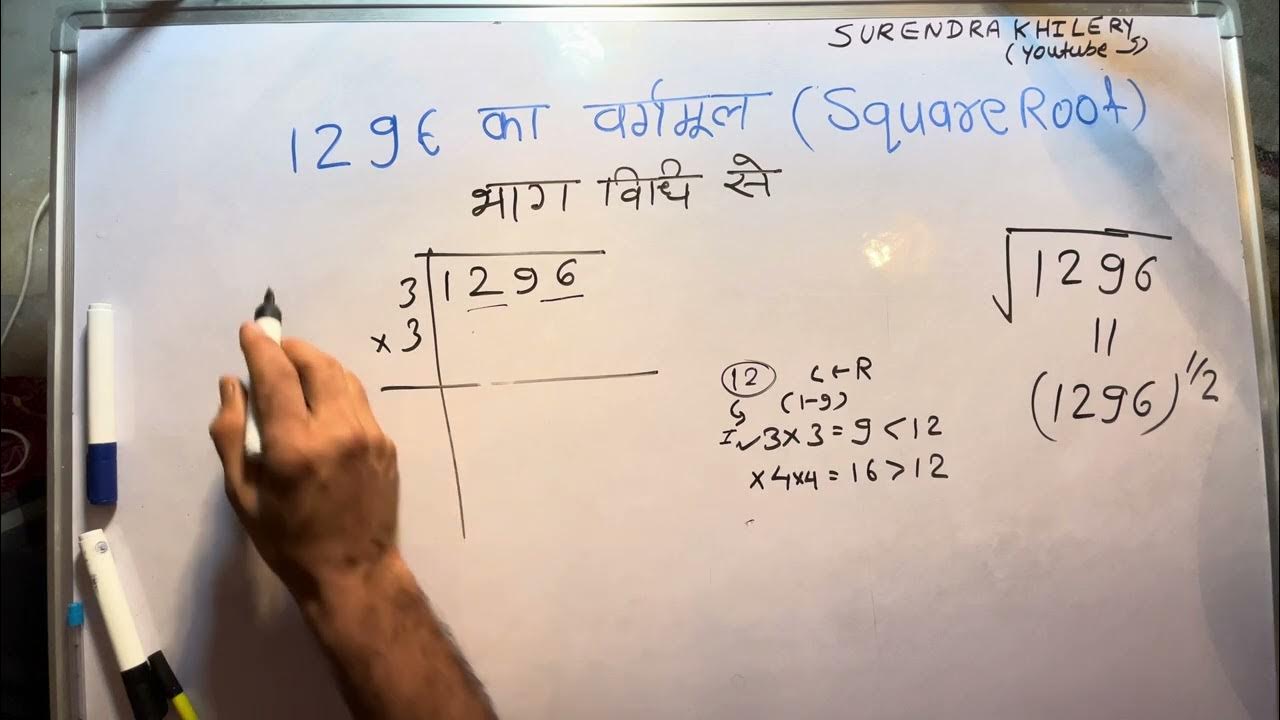 SURENDRA KHILERY
(Youtube
129६ का वर्गमूल (Square Root)
भाग विधि से
3 1296
× 3
√1296
||
(1296)^1/2
12 ← R
(1-9)
I ✓ 3×3=9<12
×4×4=16>12